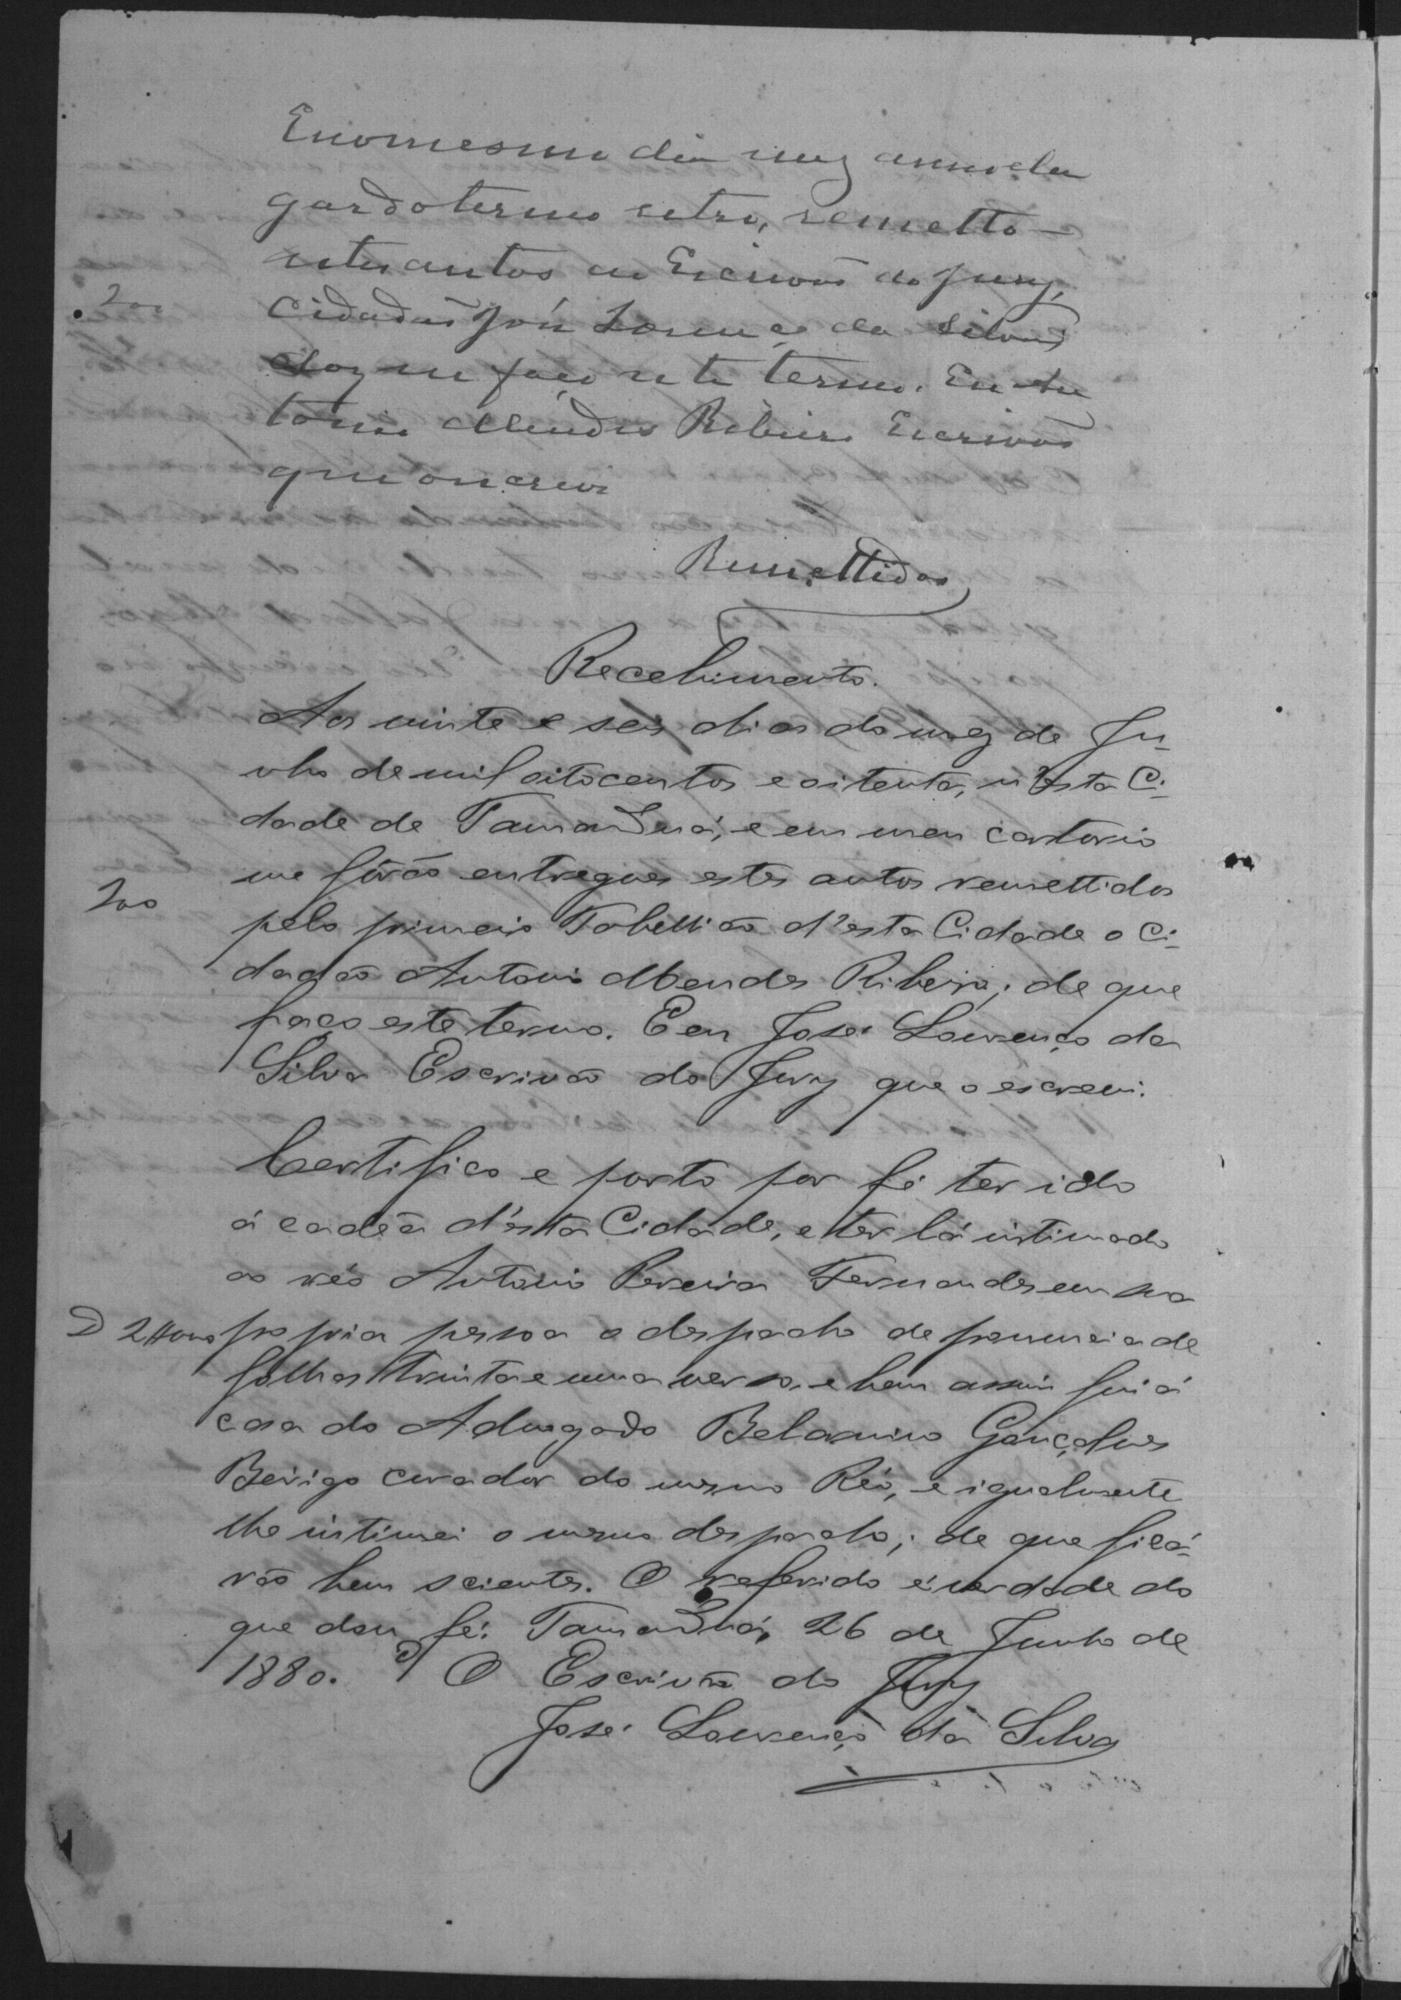 E no mesmo dia mez anno e lu
gar do termo retro, remetto
estes autos ao Escrivaõ do Jury,
200
Cidadaõ José Lourenço da Silva;
do que faço este termo. Eu An
tonio Mendes Ribeiro Escrivaõ
que o escrevi
Remettidos
Recebimento.
Aos vinte e seis dias do mez de Ju-
nho de mil oitocentos e oitenta, n'esta Ci-
dade de Tamanduá, e em meu cartorio
me forão entregues estes autos remettidos
200
pelo primeiro Tabellião d'esta Cidade o Ci-
dadão Antonio Mendes Ribeiro; de que
faço este termo. E eu José Lourenço da
Silva Escrivão do Jury que o escrevi.
Certifico e porto por fé ter ido
á cadêa d'esta Cidade, e ter lá intimado
ao réo Antonio Pereira Fernandes em sua
D 2$000
propria pessoa o despacho de pronuncia de
folhas trinta e uma verso, e bem assim fui á
casa do Advogado Belarmino Gonçalves
curador do mesmo Réo, e igualmente
lhe intimei o mesmo despacho; de que ficá-
rão bem scientes. O referido é verdade do
que dou fé. Tamanduá, 26 de Junho de
1880. O Escrivão do Jury
José Lourenço da Silva